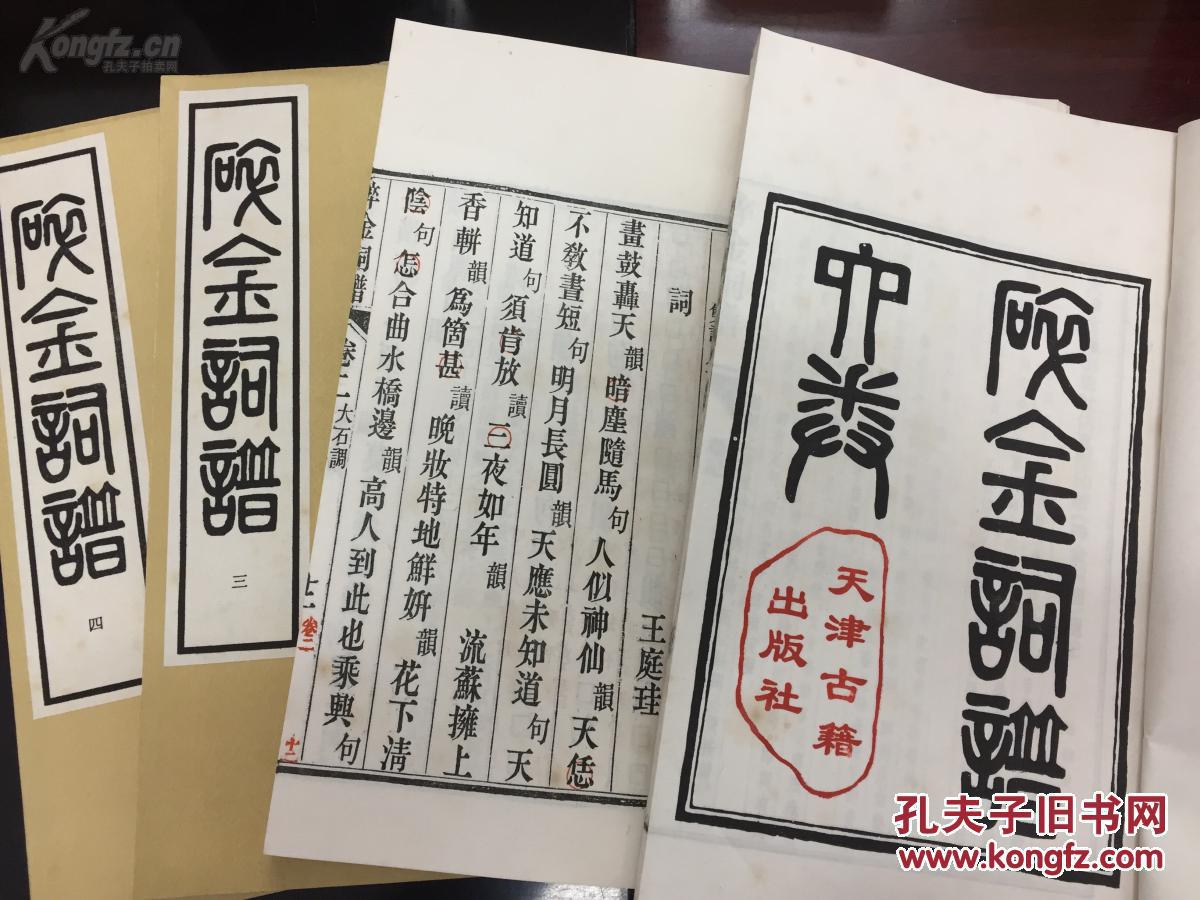 Kongfz.cn
孔夫子拍卖网
碎金詞譜
四
碎金詞譜
三
詞 王庭珪
畫鼓轟天韻暗塵隨馬句人似神仙韻天恁
不教晝短句明月長圓韻天應未知道句天
知道句須肯放讀三夜如年韻 流蘇擁上
香軿韻爲箇甚讀晚妝特地鮮妍韻花下清
陰句怎合曲水橋邊韻高人到此也乘興句
碎金詞譜 卷二大石調 十二
卷二
十二
碎金詞譜
六卷
天津古籍
出版社
孔夫子旧书网
www.kongfz.com